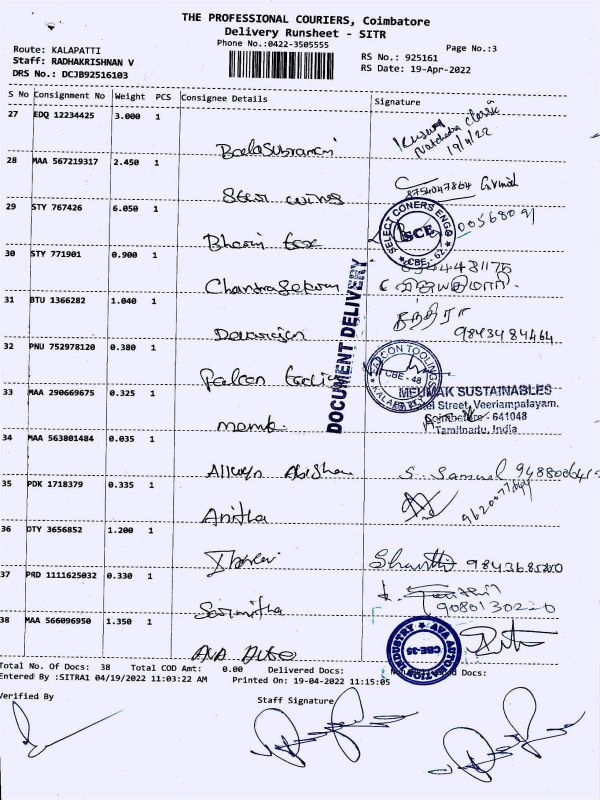 THE PROFESSIONAL COURIERS, Coimbatore
Delivery Runsheet - SITR
Phone No.:0422-3505555
Page No.:3
Route: KALAPATTI
Staff: RADHAKRISHNAN V
DRS No.: DCJB92516103
RS No.: 925161
RS Date: 19-Apr-2022
S No Consignment No Weight PCS Consignee Details Signature
27 EDQ 12234425 3.000 1
Balasubramani
19/4/22
28 MAA 567219317 2.450 1
8754047864
29 STY 767426 6.050 1
SELECT CONERS ENGG
SCE
CBE
30 STY 771901 0.900 1
Chandrasekaran
31 BTU 1366282 1.040 1
Devarajan
9843484464
DOCUMENT DELIVERY
32 PNU 752978120 0.380 1
Falcon
CBE - 48
33 MAA 290669675 0.325 1
SUSTAINABLES
Street, Veeriampalayam,
Coimbatore - 641048
Tamilnadu, India
34 MAA 563801484 0.035 1
S. Samuel
35 PDK 1718379 0.335 1
Anitha
36 OTY 3656852 1.200 1
Shanthi
37 PRD 1111625032 0.330 1
9080130220
38 MAA 566096950 1.350 1
AVA Auto
AVA AUTOMATION INDUSTRY
CBE-35
Total No. Of Docs: 38 Total COD Amt: 0.00 Delivered Docs: Docs:
Entered By :SITRA1 04/19/2022 11:03:22 AM Printed On: 19-04-2022 11:15:05
Verified By
Staff Signature